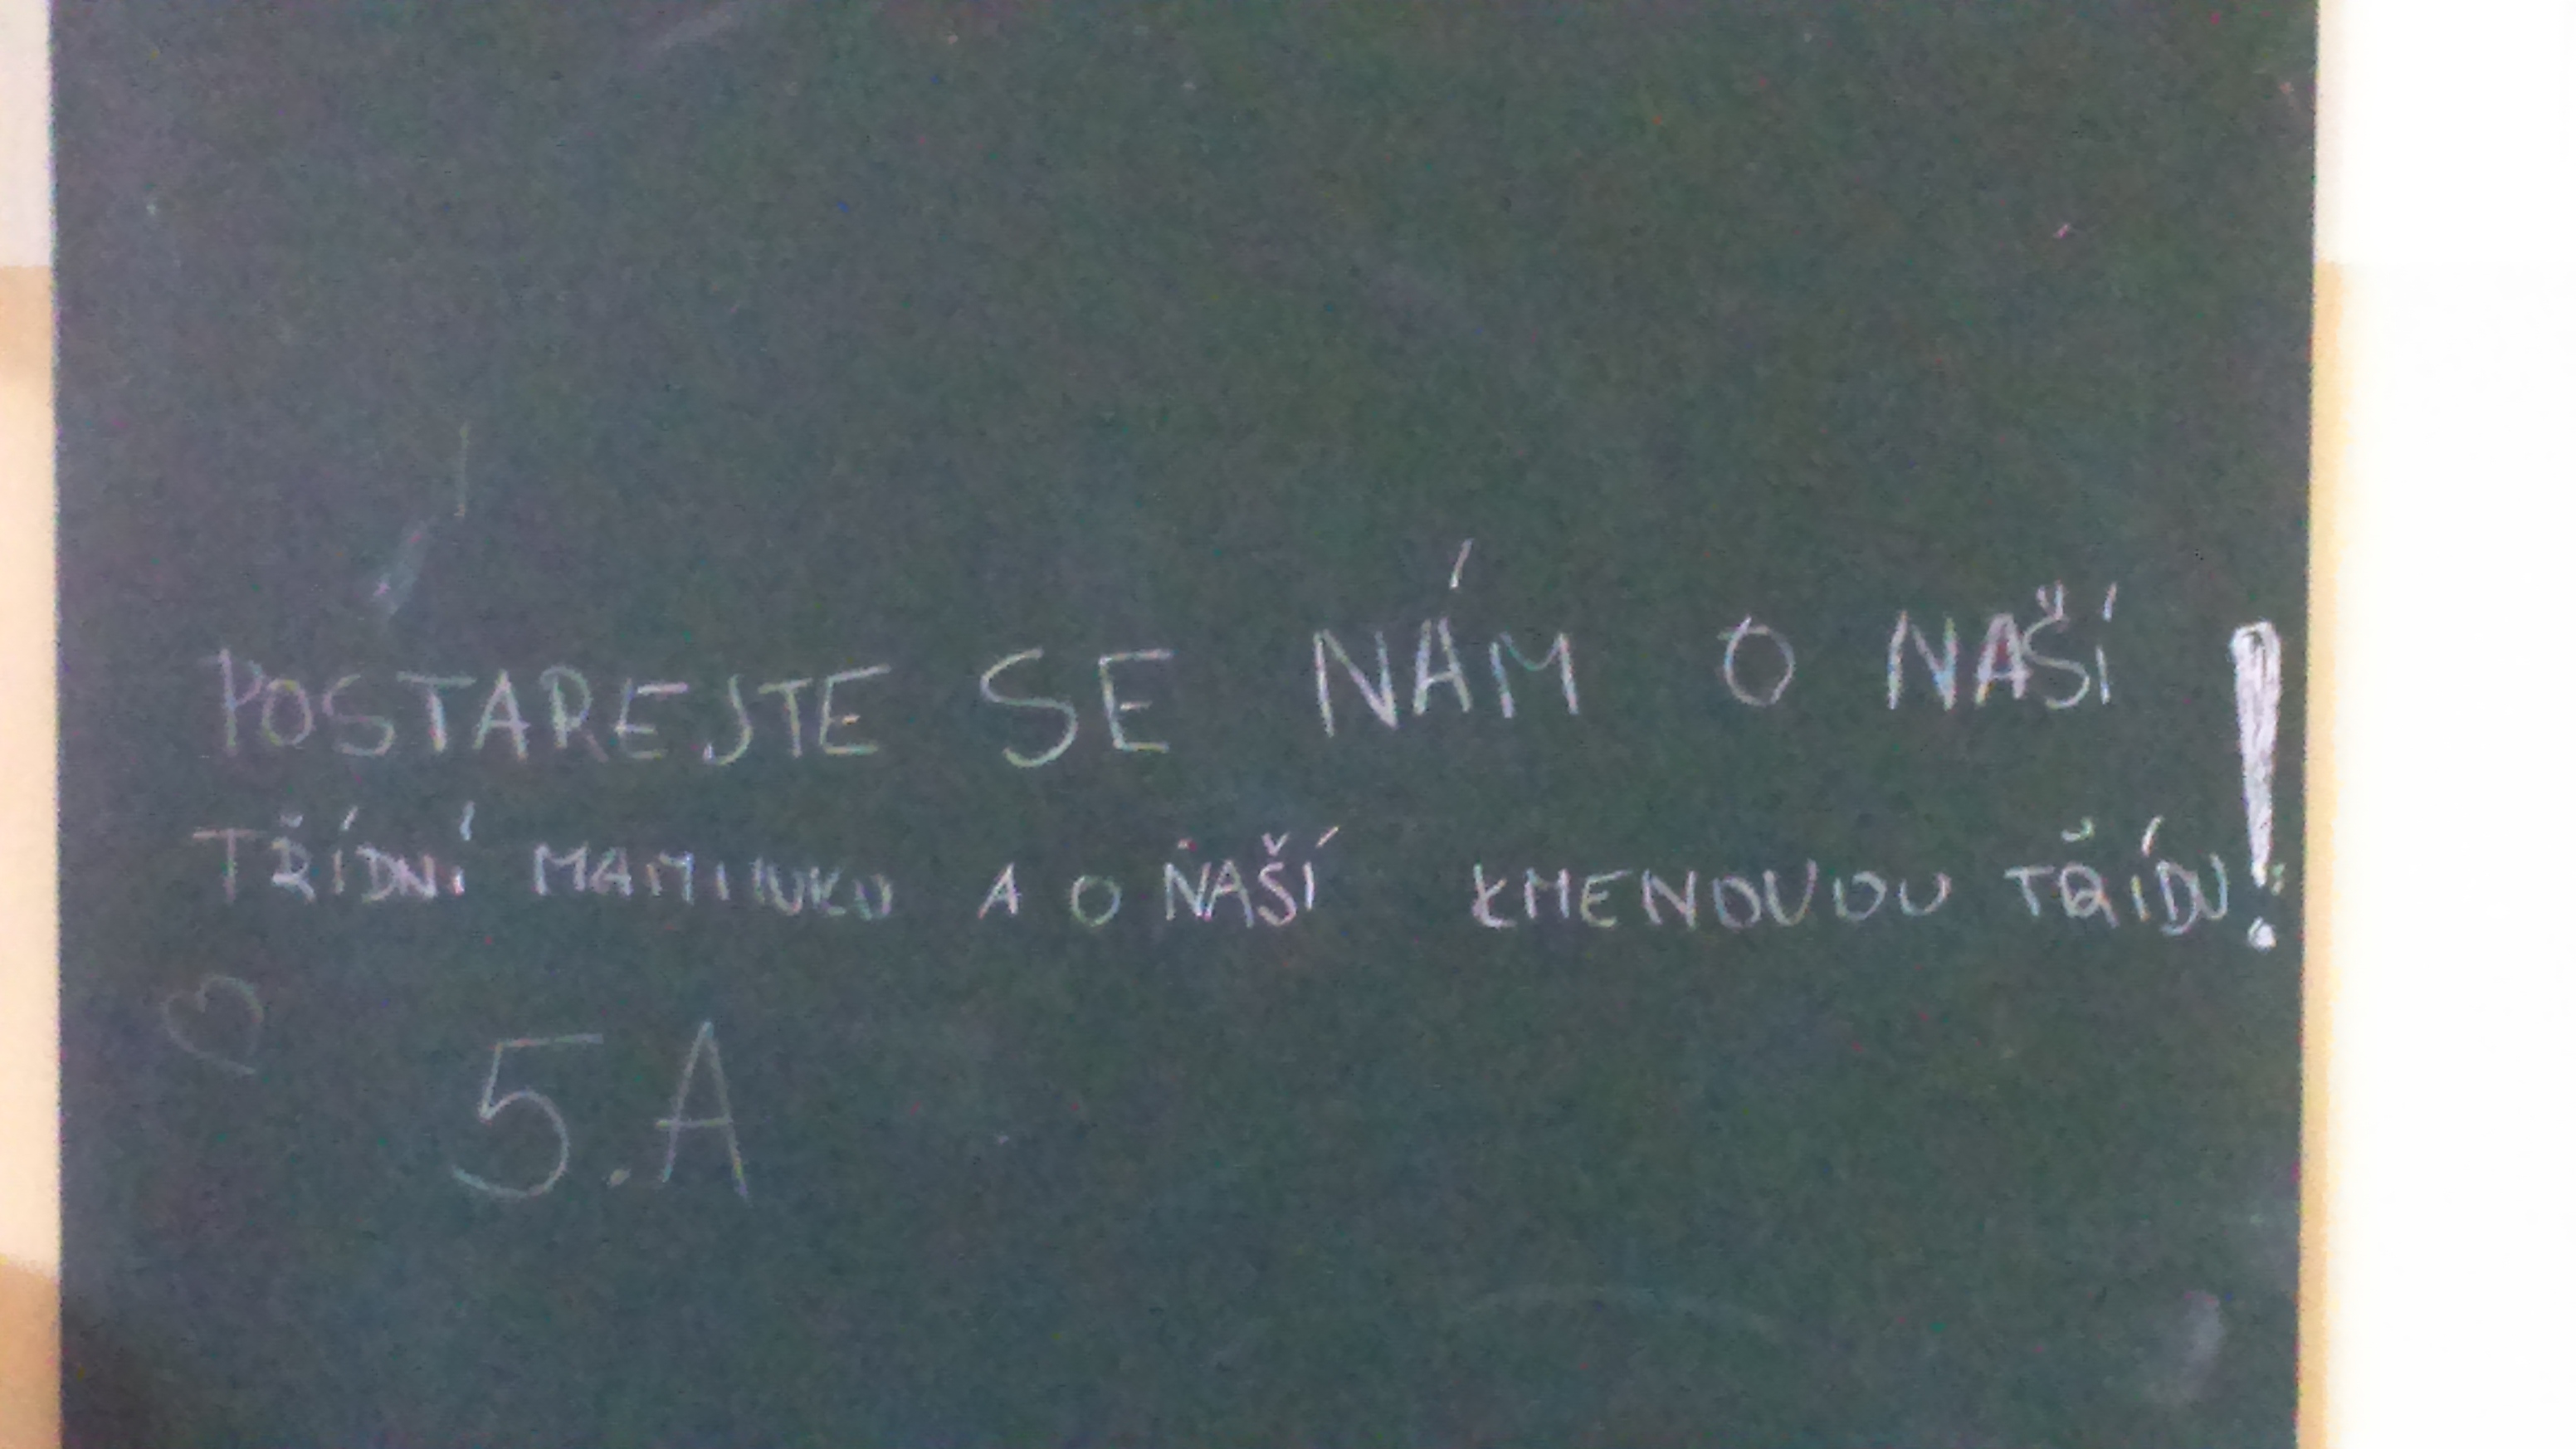 POSTAREJTE SE NÁM O NAŠÍ
TŘÍDNÍ MAMINKU A O NAŠÍ KMENOVOU TŘÍDU!
5.A